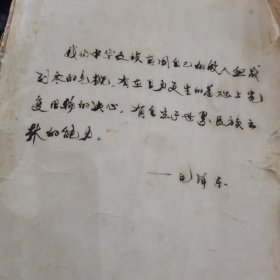 我们中华民族有同自己的敌人血战
到底的气概，有在自力更生的基础上光
复旧物的决心，有自立于世界民族之
林的能力。
——毛泽东